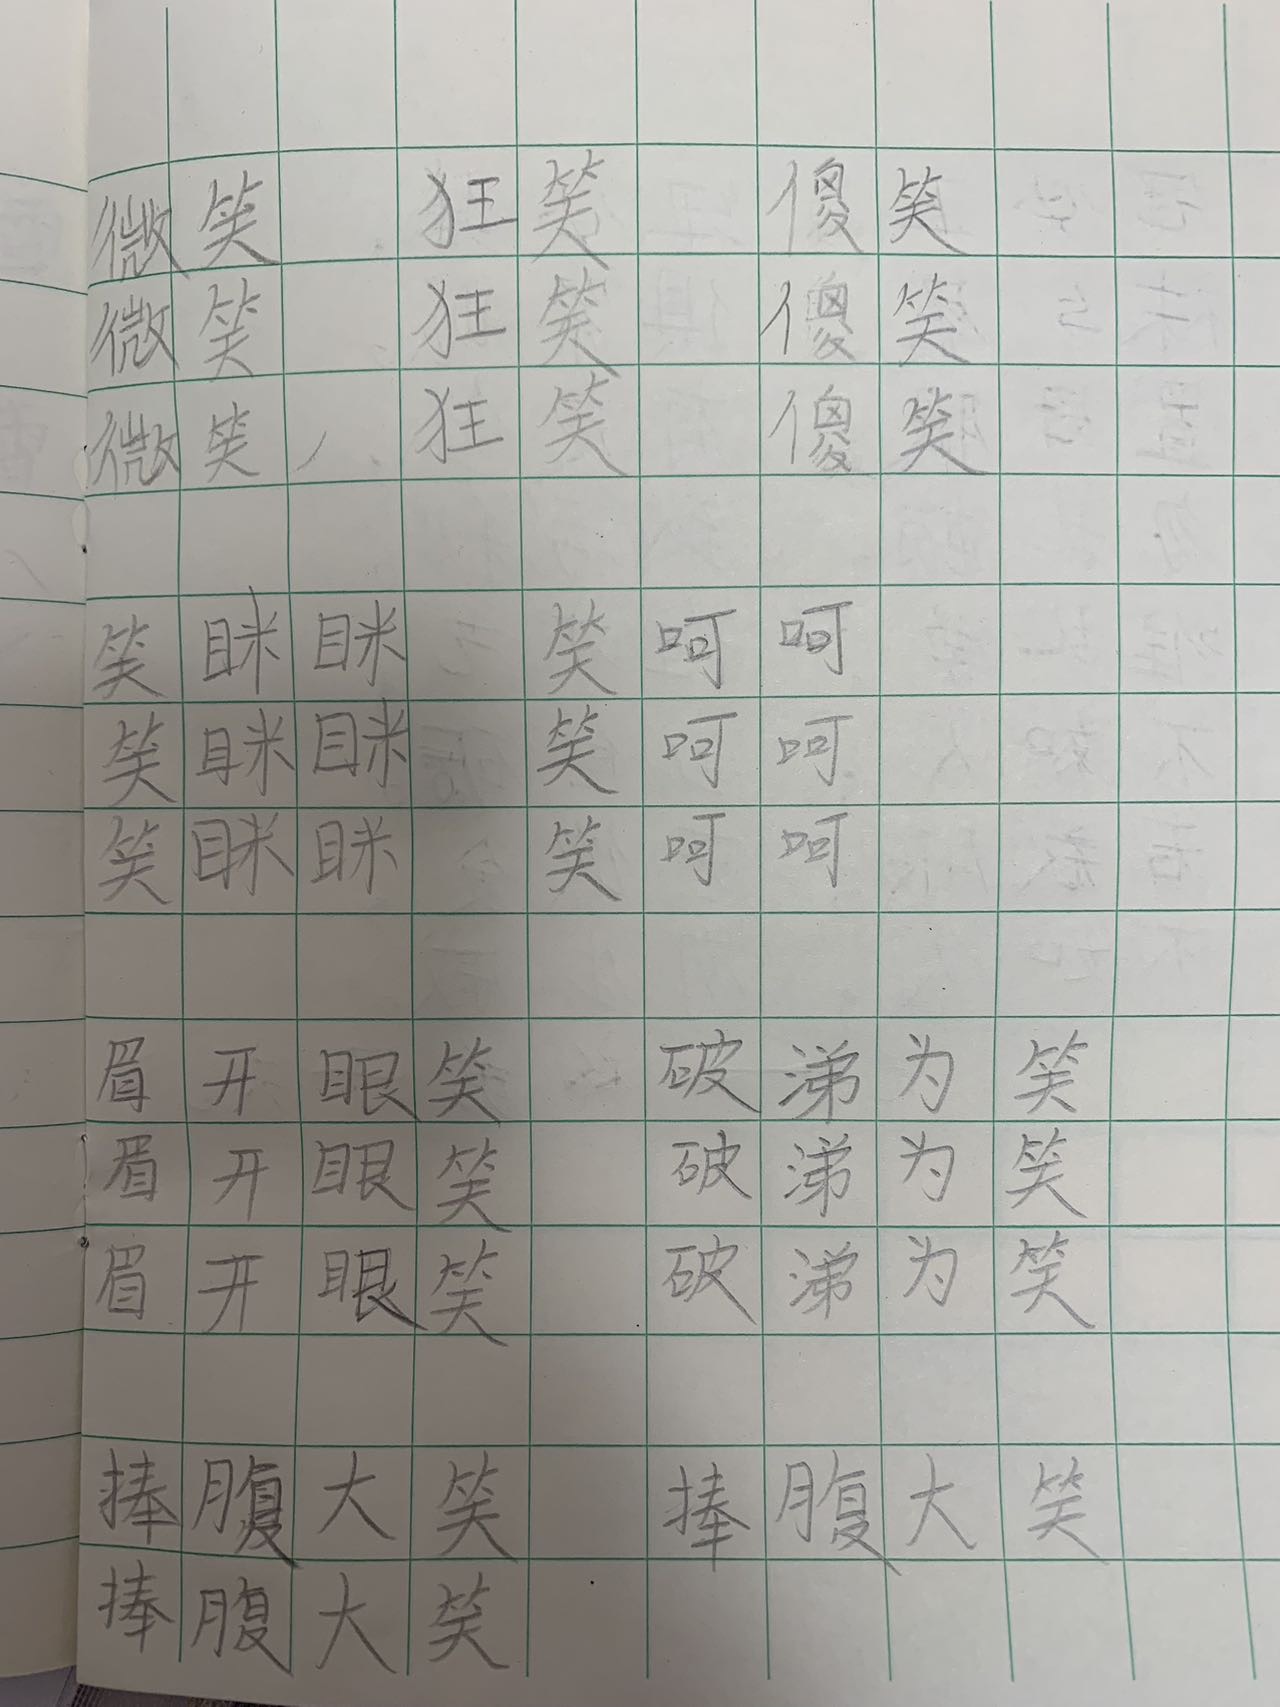 微笑 狂笑 傻笑
微笑 狂笑 傻笑
微笑 狂笑 傻笑
笑眯眯 笑呵呵
笑眯眯 笑呵呵
笑眯眯 笑呵呵
眉开眼笑 破涕为笑
眉开眼笑 破涕为笑
眉开眼笑 破涕为笑
捧腹大笑 捧腹大笑
捧腹大笑